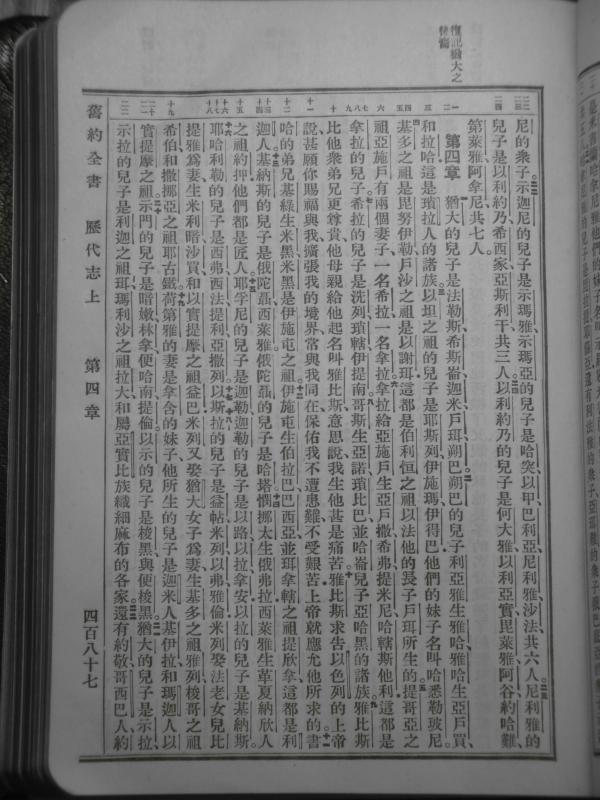 復記猶大之後裔
尼的衆子示迦尼的兒子是示瑪雅示瑪亞的兒子是哈突以甲巴利亞尼利雅沙法共六人尼利雅的
兒子是以利約乃希西家亞斯利干共三人以利約乃的兒子是何大雅以利亞實毘萊雅阿谷約哈難
第萊雅阿拿尼共七人
第四章 猶大的兒子是法勒斯希斯崙迦米戶珥朔巴朔巴的兒子利亞雅生雅哈雅哈生亞戶買
和拉哈這是瑣拉人的諸族以坦之祖的兒子是耶斯列伊施瑪伊得巴他們的妹子名叫哈悉勒玻尼
基多之祖是毘努伊勒戶沙之祖是以謝珥這都是伯利恒之祖以法他的長子戶珥所生的提哥亞之
祖亞施戶有兩個妻子一名希拉一名拿拉拿拉給亞施戶生亞戶撒希弗提米尼哈轄斯他利這都是
拿拉的兒子希拉的兒子是洗列瑣轄伊提南哥斯生亞諾瑣比巴並哈崙兒子亞哈黑的諸族雅比斯
比他衆弟兄更尊貴他母親給他起名叫雅比斯意思說我生他甚是痛苦雅比斯求告以色列的上帝
說甚願你賜福與我擴張我的境界常與我同在保佑我不遭患難不受艱苦上帝就應允他所求的書
哈的弟兄基綠生米黑米黑是伊施屯之祖伊施屯生伯拉巴巴西亞並珥拿轄之祖提欣拿這都是利
迦人基納斯的兒子是俄陀聶西萊雅俄陀聶的兒子是哈塔憫挪太生俄弗拉西萊雅生革夏納欣人
之祖約押他們都是匠人耶孚尼的兒子是迦勒迦勒的兒子是以路以拉拿安以拉的兒子是基納斯
耶哈利勒的兒子是西弗西法提利亞撒列以斯拉的兒子是益帖米列以弗雅倫米列娶法老女兒比
提雅爲妻生米利暗沙買和以實提摩之祖益巴米列又娶猶大女子爲妻生基多之祖雅列梭哥之祖
希伯和撒挪亞之祖耶古鐵荷第雅的妻是拿含的妹子他所生的兒子是迦米人基伊拉和瑪迦人以
實提摩之祖示門的兒子是暗嫩林拿便哈南提倫以示的兒子是梭黑與便梭黑猶大的兒子是示拉
示拉的兒子是利迦之祖珥瑪利沙之祖拉大和屬亞實比族織細麻布的各家還有約敬哥西巴人約
舊約全書 歷代志上 第四章 四百八十七